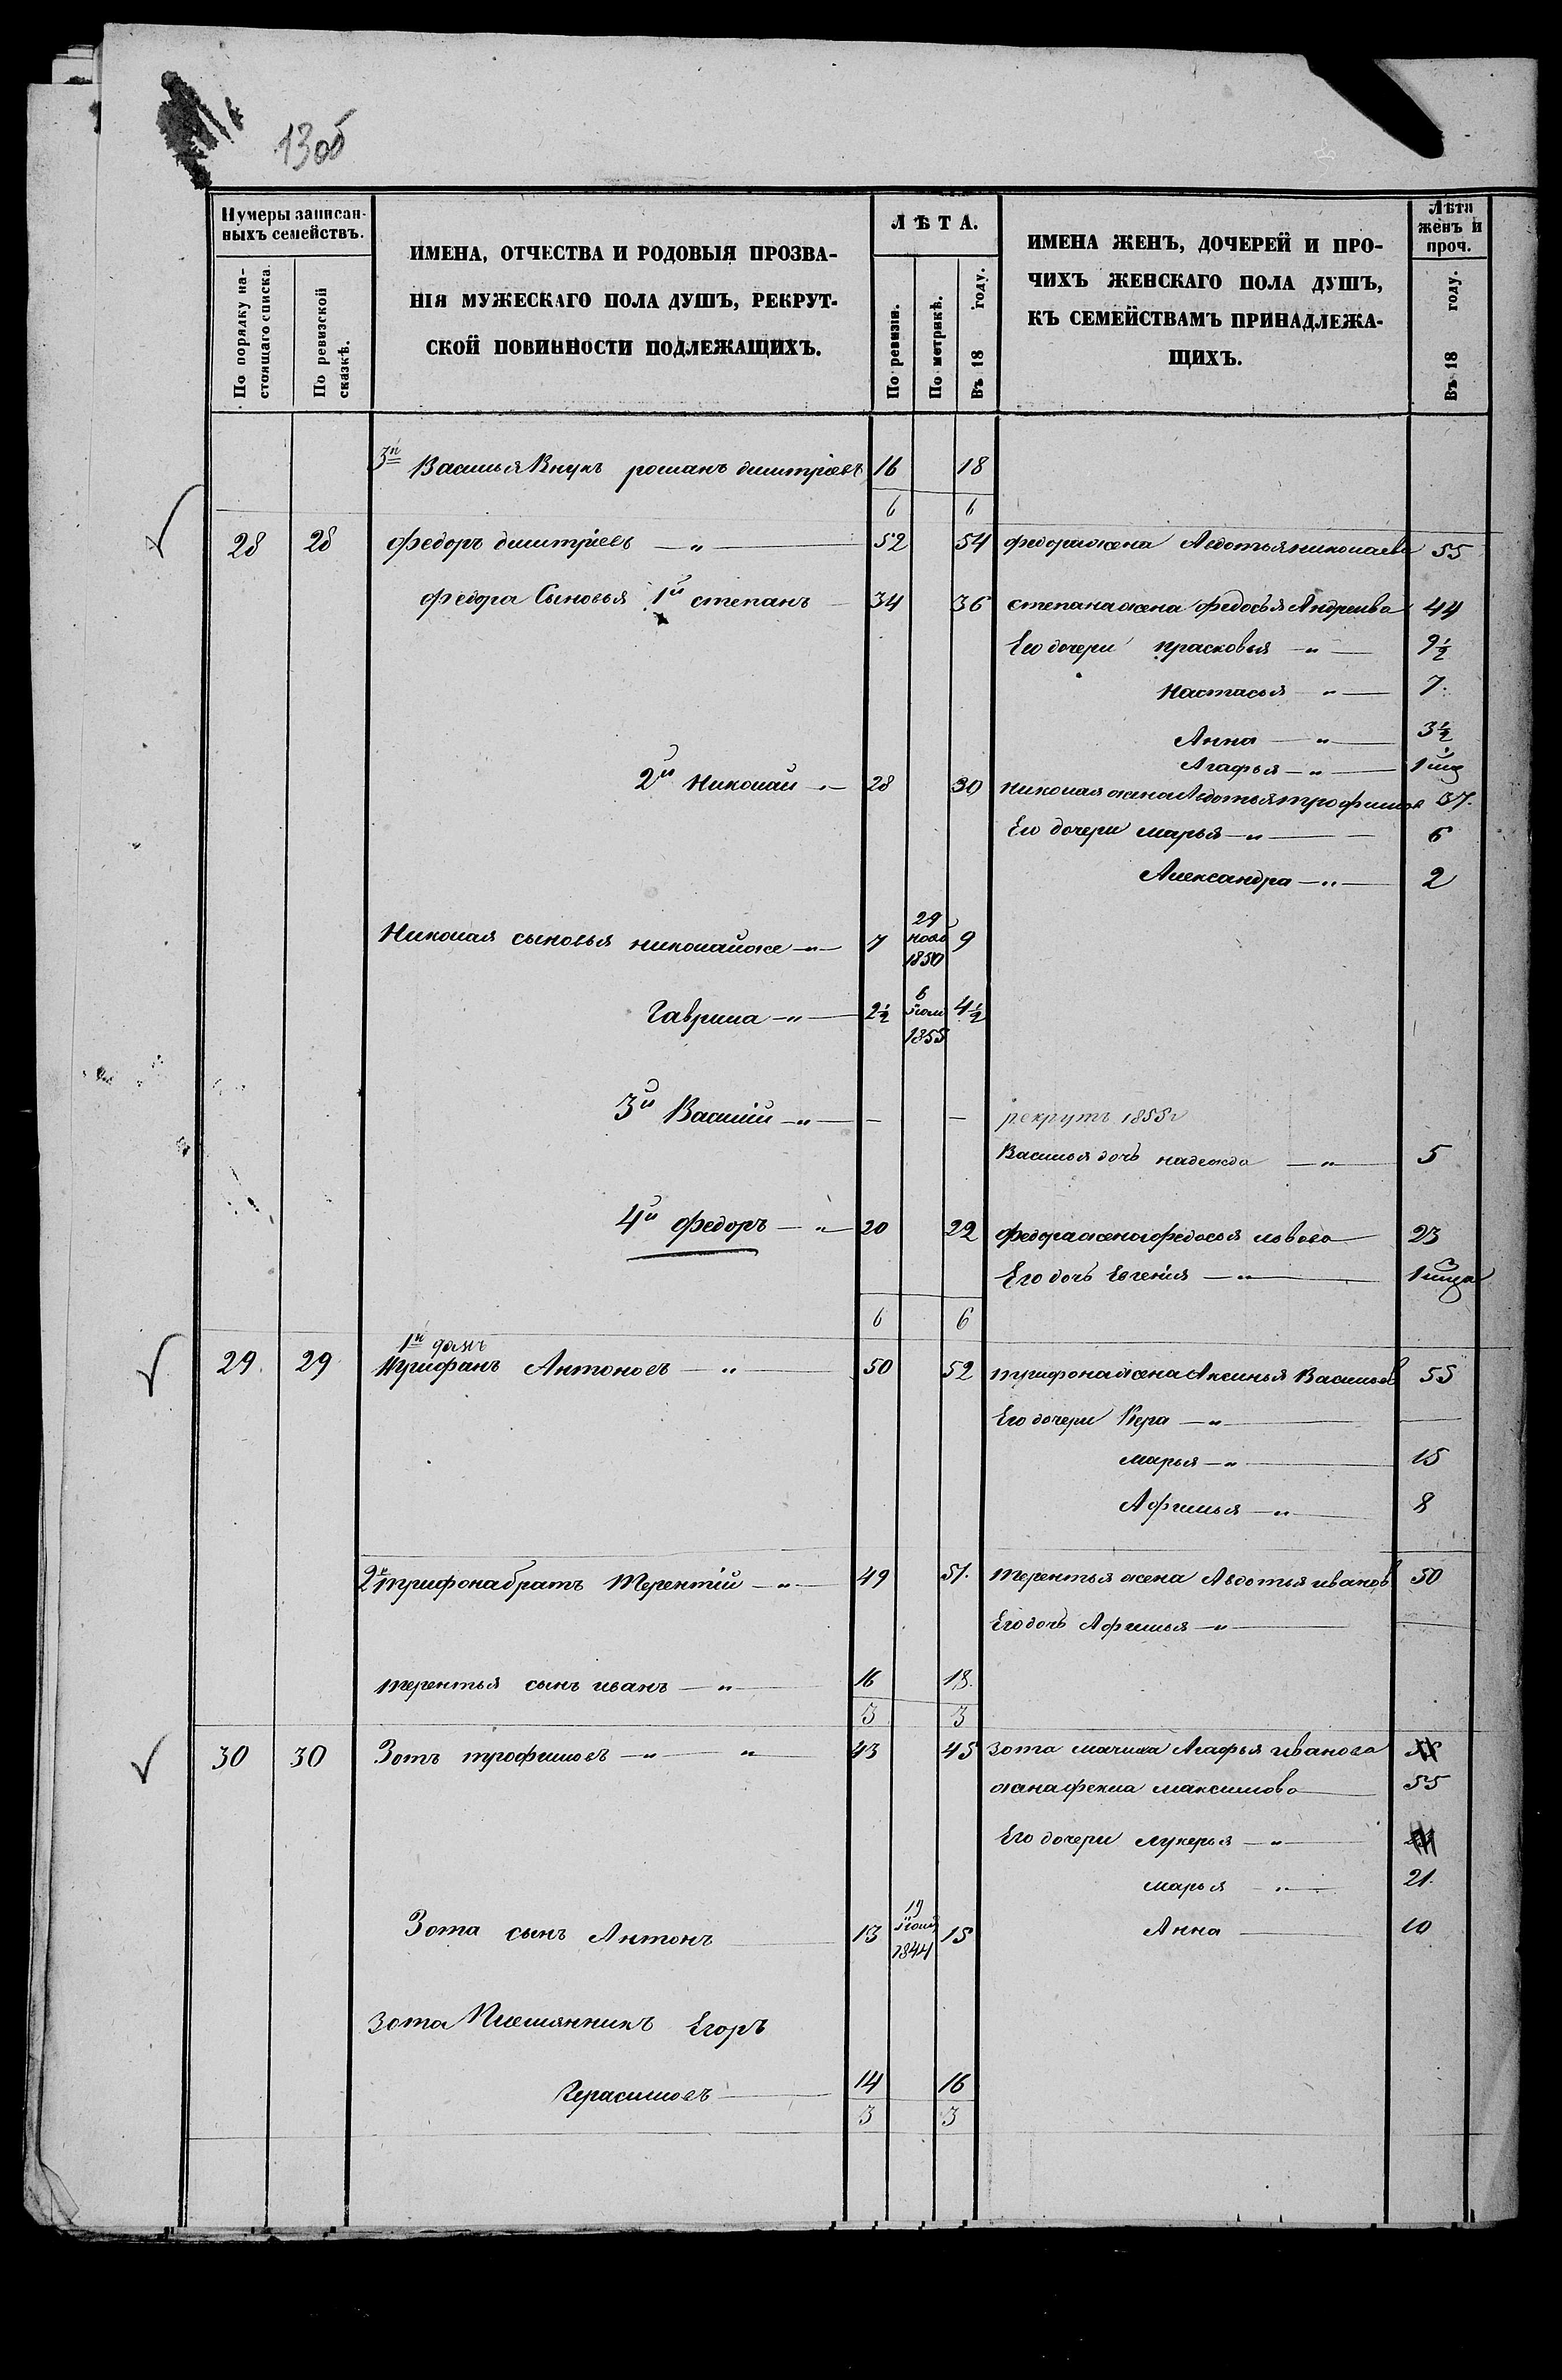 13об
Нумеры записан-
ныхъ семействъ.
По порядку на-
стоящаго списка.
По ревизской
сказкѣ.
ИМЕНА, ОТЧЕСТВА И РОДОВЫЯ ПРОЗВА-
НІЯ МУЖЕСКАГО ПОЛА ДУШЪ, РЕКРУТ-
СКОЙ ПОВИННОСТИ ПОДЛЕЖАЩИХЪ.
ЛѢТА.
По ревизіи.
По метрикѣ.
Въ 18 году.
ИМЕНА ЖЕНЪ, ДОЧЕРЕЙ И ПРО-
ЧИХЪ ЖЕНСКАГО ПОЛА ДУШЪ,
КЪ СЕМЕЙСТВАМЪ ПРИНАДЛЕЖА-
ЩИХЪ.
Лѣта
женъ и
проч.
Въ 18 году.
3й Василья Внукъ романъ дмитріевъ 16 18
6 6
28 28 федоръ дмитріевъ — " — 52 54 федора жена Авдотья николаева 55
федора Сыновья 1й степанъ — 34 36 степана жена федосья Андреева 44
Его дочери прасковья — " — 9½
настасья — " — 7.
Анна — " — 3½
Агафья — " — 1
2й николай — " — 28 30 николая жена Авдотья трофимова 37.
Его дочери марья — " — 6
Александра — " — 2
Николая сыновья николай же — " — 7 29 нояб 1850 9
Гаврила — " — 2½ 6 1855 4½
3й Василій — " — — — рекрутъ 1855г
Василья дочь надежда — " — 5
4й федоръ — " — 20 22 федора жена федосья 23
Его дочь Евгенія — " — 1
6 6
1й домъ
29. 29. трифанъ Антоновъ — " — 50 52 трифона жена Аксинья Васильев 55
Его дочери Вера — " — —
марья — " — 15
Афимья — " — 8
2й трифона братъ терентій — " — 49 51. терентья жена Авдотья иванов 50
Его дочь Афимья — " — —
терентья сынъ иванъ — " — 16 18.
3 3
30 30 Зотъ трофимовъ — " — " 43 45 Зота мачиха Агафья иванова
жена фекла максимова — 55
Его дочери лукерья — " —
марья — " — 21.
Зота сынъ Антонъ — 13 19 1844 15 Анна — 10
Зота Племянникъ Егоръ
Герасимовъ — 14 16
3 3